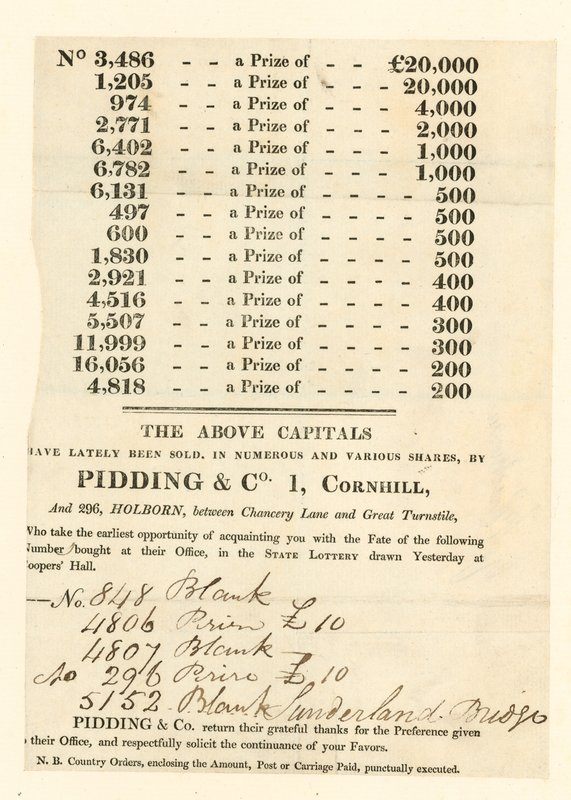 No 3,486 - - a Prize of - - - £20,000
1,205 - - a Prize of - - - 20,000
974 - - a Prize of - - - 4,000
2,771 - - a Prize of - - - 2,000
6,402 - - a Prize of - - - 1,000
6,782 - - a Prize of - - - 1,000
6,131 - - a Prize of - - - - 500
497 - - a Prize of - - - - 500
600 - - a Prize of - - - - 500
1,830 - - a Prize of - - - - 500
2,921 - - a Prize of - - - - 400
4,516 - - a Prize of - - - - 400
5,507 - - a Prize of - - - - 300
11,999 - - a Prize of - - - - 300
16,056 - - a Prize of - - - - 200
4,818 - - a Prize of - - - - 200
THE ABOVE CAPITALS
HAVE LATELY BEEN SOLD, IN NUMEROUS AND VARIOUS SHARES, BY
PIDDING & Co. 1, CORNHILL,
And 296, HOLBORN, between Chancery Lane and Great Turnstile,
Who take the earliest opportunity of acquainting you with the Fate of the following
Number bought at their Office, in the STATE LOTTERY drawn Yesterday at
Coopers' Hall.
No. 848 Blank
4806 £10
4807 Blank
No 296 £10
5152 Blank Sunderland Bridge
PIDDING & Co. return their grateful thanks for the Preference given
their Office, and respectfully solicit the continuance of your Favors.
N. B. Country Orders, enclosing the Amount, Post or Carriage Paid, punctually executed.